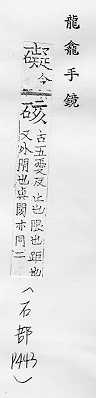 龍龕手鏡
礙今
硋古五愛反止也限也距也
又外閑也與閡亦同二
(石部 P443)